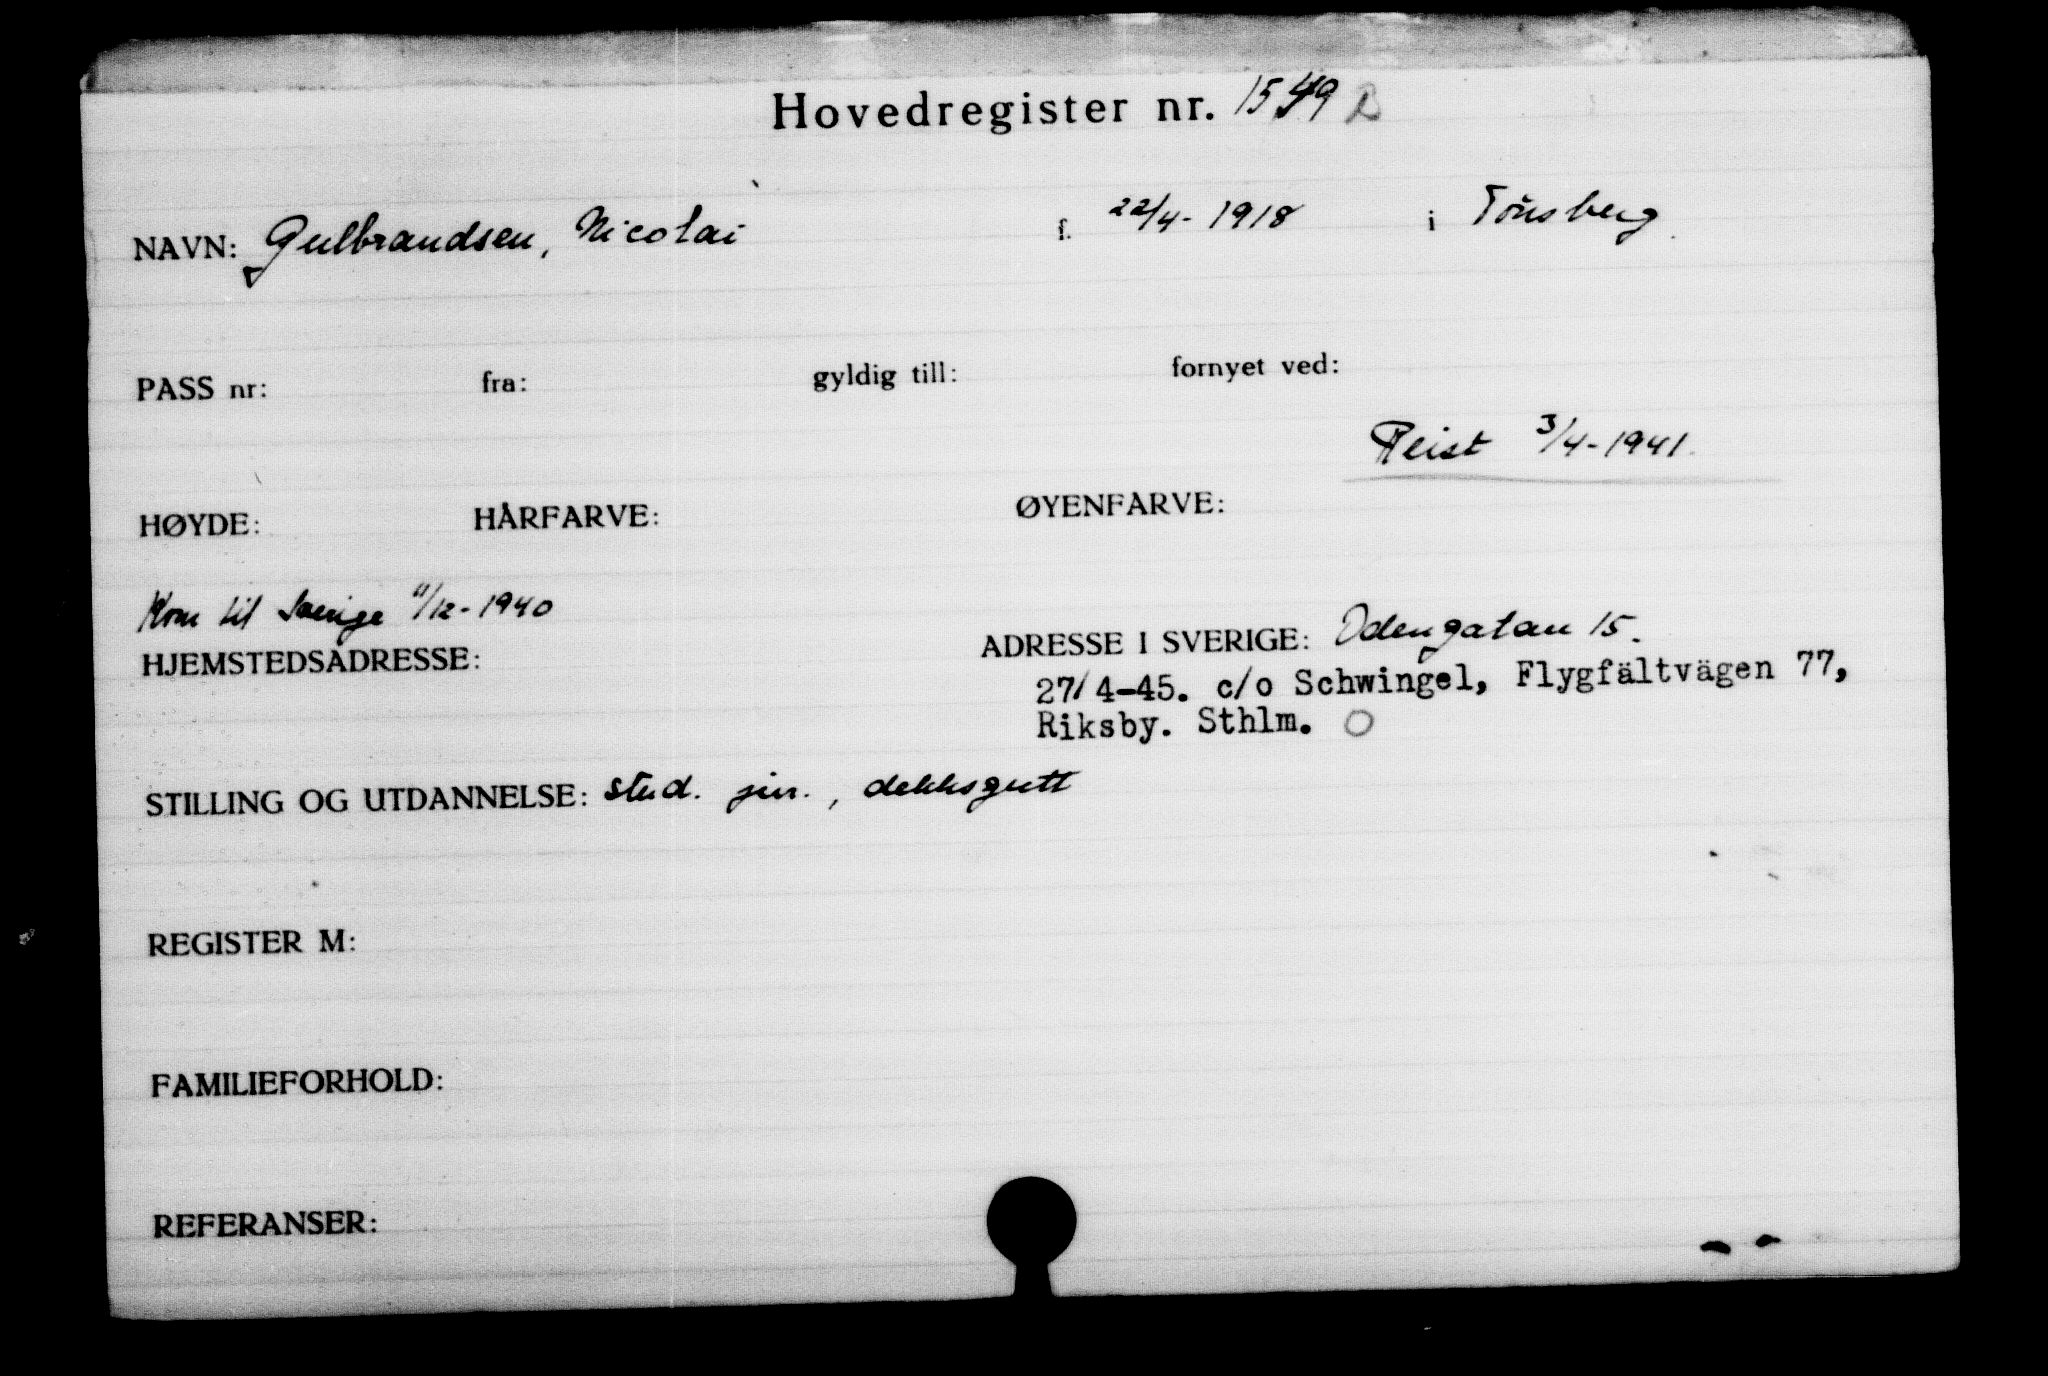 Hovedregister nr. 1549 B
NAVN: Gulbrandsen, Nicolai f. 22/4-1918 i Tönsberg.
PASS nr: fra: gyldig till: fornyet ved:
Reist 3/4-1941.
HØYDE: HÅRFARVE: ØYENFARVE:
Kom til Sverige 11/12-1940
HJEMSTEDSADRESSE: ADRESSE I SVERIGE: Odengatan 15.
27/4-45. c/o Schwingel, Flygfältvägen 77,
Riksby. Sthlm.
STILLING OG UTDANNELSE: stud. jur., dekksgutt
REGISTER M:
FAMILIEFORHOLD:
REFERANSER: